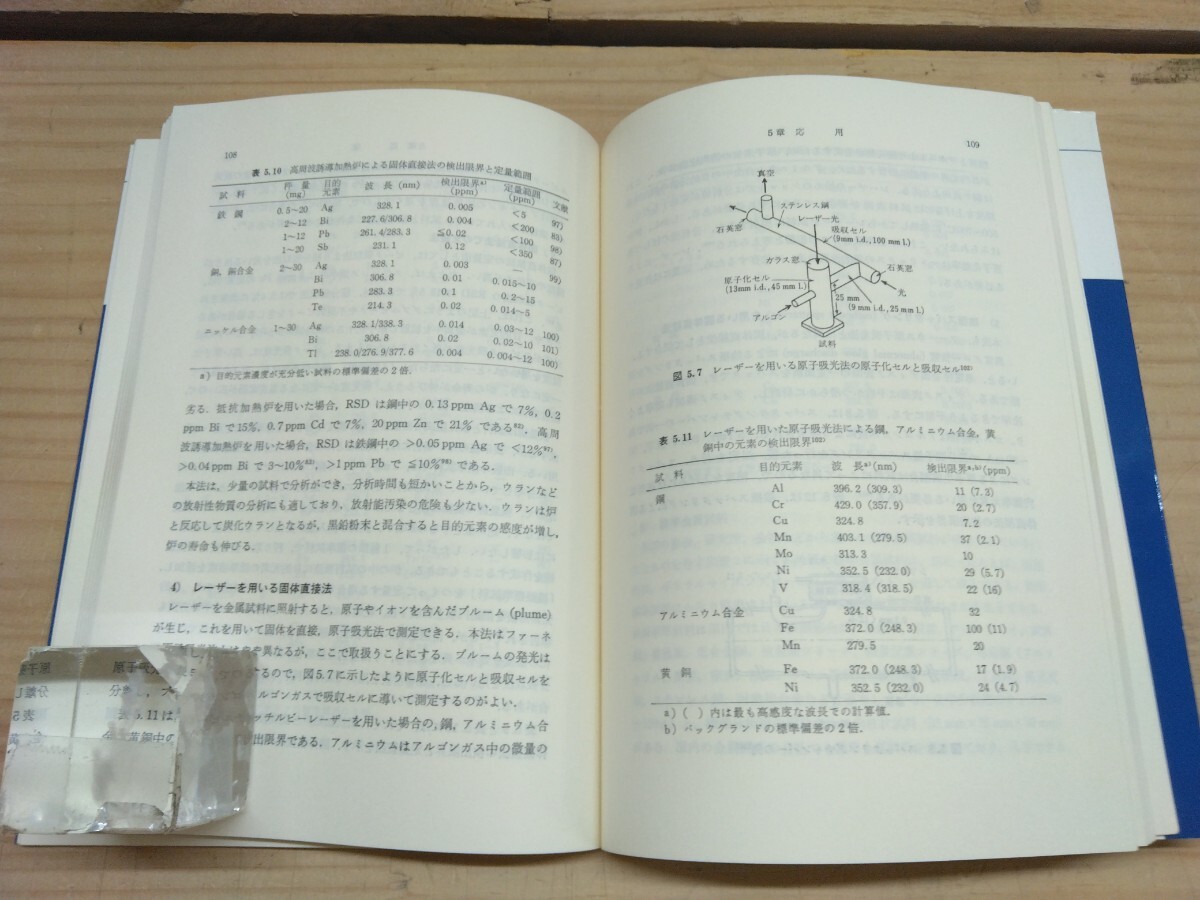 108
表 5.10 高周波誘導加熱炉による固体直接法の検出限界と定量範囲
試 料 秤 量 (mg) 目的元素 波 長 (nm) 検出限界a) (ppm) 定量範囲 (ppm) 文献
鉄 鋼 0.5〜20 Ag 328.1 0.005 <5 97)
2〜12 Bi 227.6/306.8 0.004 <200 85)
1〜12 Pb 261.4/283.3 ≦0.02 <100 98)
1〜20 Sb 231.1 0.12 <350 87)
銅, 銅合金 2〜30 Ag 328.1 0.003 — 99)
Bi 306.8 0.01 0.015〜10
Pb 283.3 0.1 0.2〜15
Te 214.3 0.02 0.014〜5
ニッケル合金 1〜30 Ag 328.1/338.3 0.014 0.03〜12 100)
Bi 306.8 0.02 0.02〜10 101)
Tl 238.0/276.9/377.6 0.004 0.004〜12 100)
a) 目的元素濃度が充分低い試料の標準偏差の2倍.
劣る. 抵抗加熱炉を用いた場合, RSD は銅中の 0.13 ppm Ag で 7%, 0.2
ppm Bi で 15%, 0.7 ppm Cd で 7%, 20 ppm Zn で 21% である. 高周
波誘導加熱炉を用いた場合, RSD は鉄鋼中の >0.05 ppm Ag で <12%97),
>0.04 ppm Bi で 3〜10%, >1 ppm Pb で ≦10% である.
本法は, 少量の試料で分析ができ, 分析時間も短かいことから, ウランなど
の放射性物質の分析にも適しており, 放射能汚染の危険も少ない. ウランは炉
と反応して炭化ウランとなるが, 黒鉛粉末と混合すると目的元素の感度が増し,
炉の寿命も伸びる.
4) レーザーを用いる固体直接法
レーザーを金属試料に照射すると, 原子やイオンを含んだプルーム (plume)
が生じ, これを用いて固体を直接, 原子吸光法で測定できる. 本法はファーネ
を異なるが, ここで取扱うことにする. プルームの発光は
るので, 図5.7に示したように原子化セルと吸収セルを
ルゴンガスで吸収セルに導いて測定するのがよい.
ッチルビーレーザーを用いた場合の, 鋼, アルミニウム合
出限界である. アルミニウムはアルゴンガス中の微量の
5章 応 用
109
真空
ステンレス鋼
レーザー光
石英窓
吸収セル
(9mm i.d., 100 mm l.)
ガラス窓
石英窓
原子化セル
(13mm i.d., 45 mm l.)
光
25 mm
(9 mm i.d., 25 mm l.)
アルゴン
試料
図 5.7 レーザーを用いる原子吸光法の原子化セルと吸収セル102)
表 5.11 レーザーを用いた原子吸光法による鋼, アルミニウム合金, 黄
銅中の元素の検出限界102)
試 料 目的元素 波 長a)(nm) 検出限界a,b)(ppm)
鋼 Al 396.2 (309.3) 11 (7.3)
Cr 429.0 (357.9) 20 (2.7)
Cu 324.8 7.2
Mn 403.1 (279.5) 37 (2.1)
Mo 313.3 10
Ni 352.5 (232.0) 29 (5.7)
V 318.4 (318.5) 22 (16)
アルミニウム合金 Cu 324.8 32
Fe 372.0 (248.3) 100 (11)
Mn 279.5 20
黄 銅 Fe 372.0 (248.3) 17 (1.9)
Ni 352.5 (232.0) 24 (4.7)
a) ( ) 内は最も高感度な波長での計算値.
b) バックグランドの標準偏差の2倍.